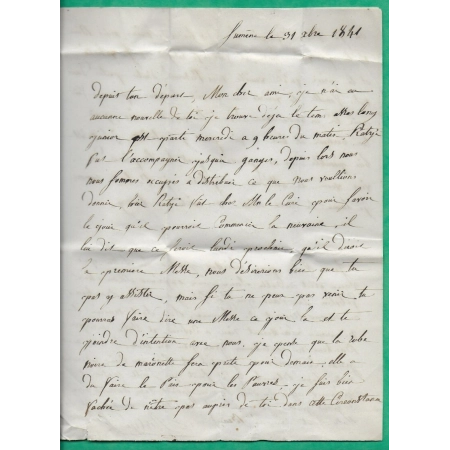 Sumène le 31 xbre 1841
depuis ton départ, Mon cher ami, je n'ai eu
aucune nouvelle de toi je trouve déja le tems assez long
est partie mercredi a 9 heures du matin
l'accompagner jusqua ganges, depuis lors nous
nous sommes occupés a distribuer ce que nous voullions
donner, hier fut chez Mr le Curé pour savoir
le jour qu'il pourroit Commencer la neuvaine, il
lui dit que ce seroit lundi prochain qu'il diroit
la premiere Messe, nous désirerions bien que tu
pus y assister, mais si tu ne peux pas venir tu
pourras faire dire une Messe ce jour la et te
joindre d'intention avec nous, je pense que la robe
noire de marionette sera prete pour demain, elle a
du faire le Pain pour les Pauvres, je suis bien
fachée de n'être pas auprès de toi dans cette Circonstance